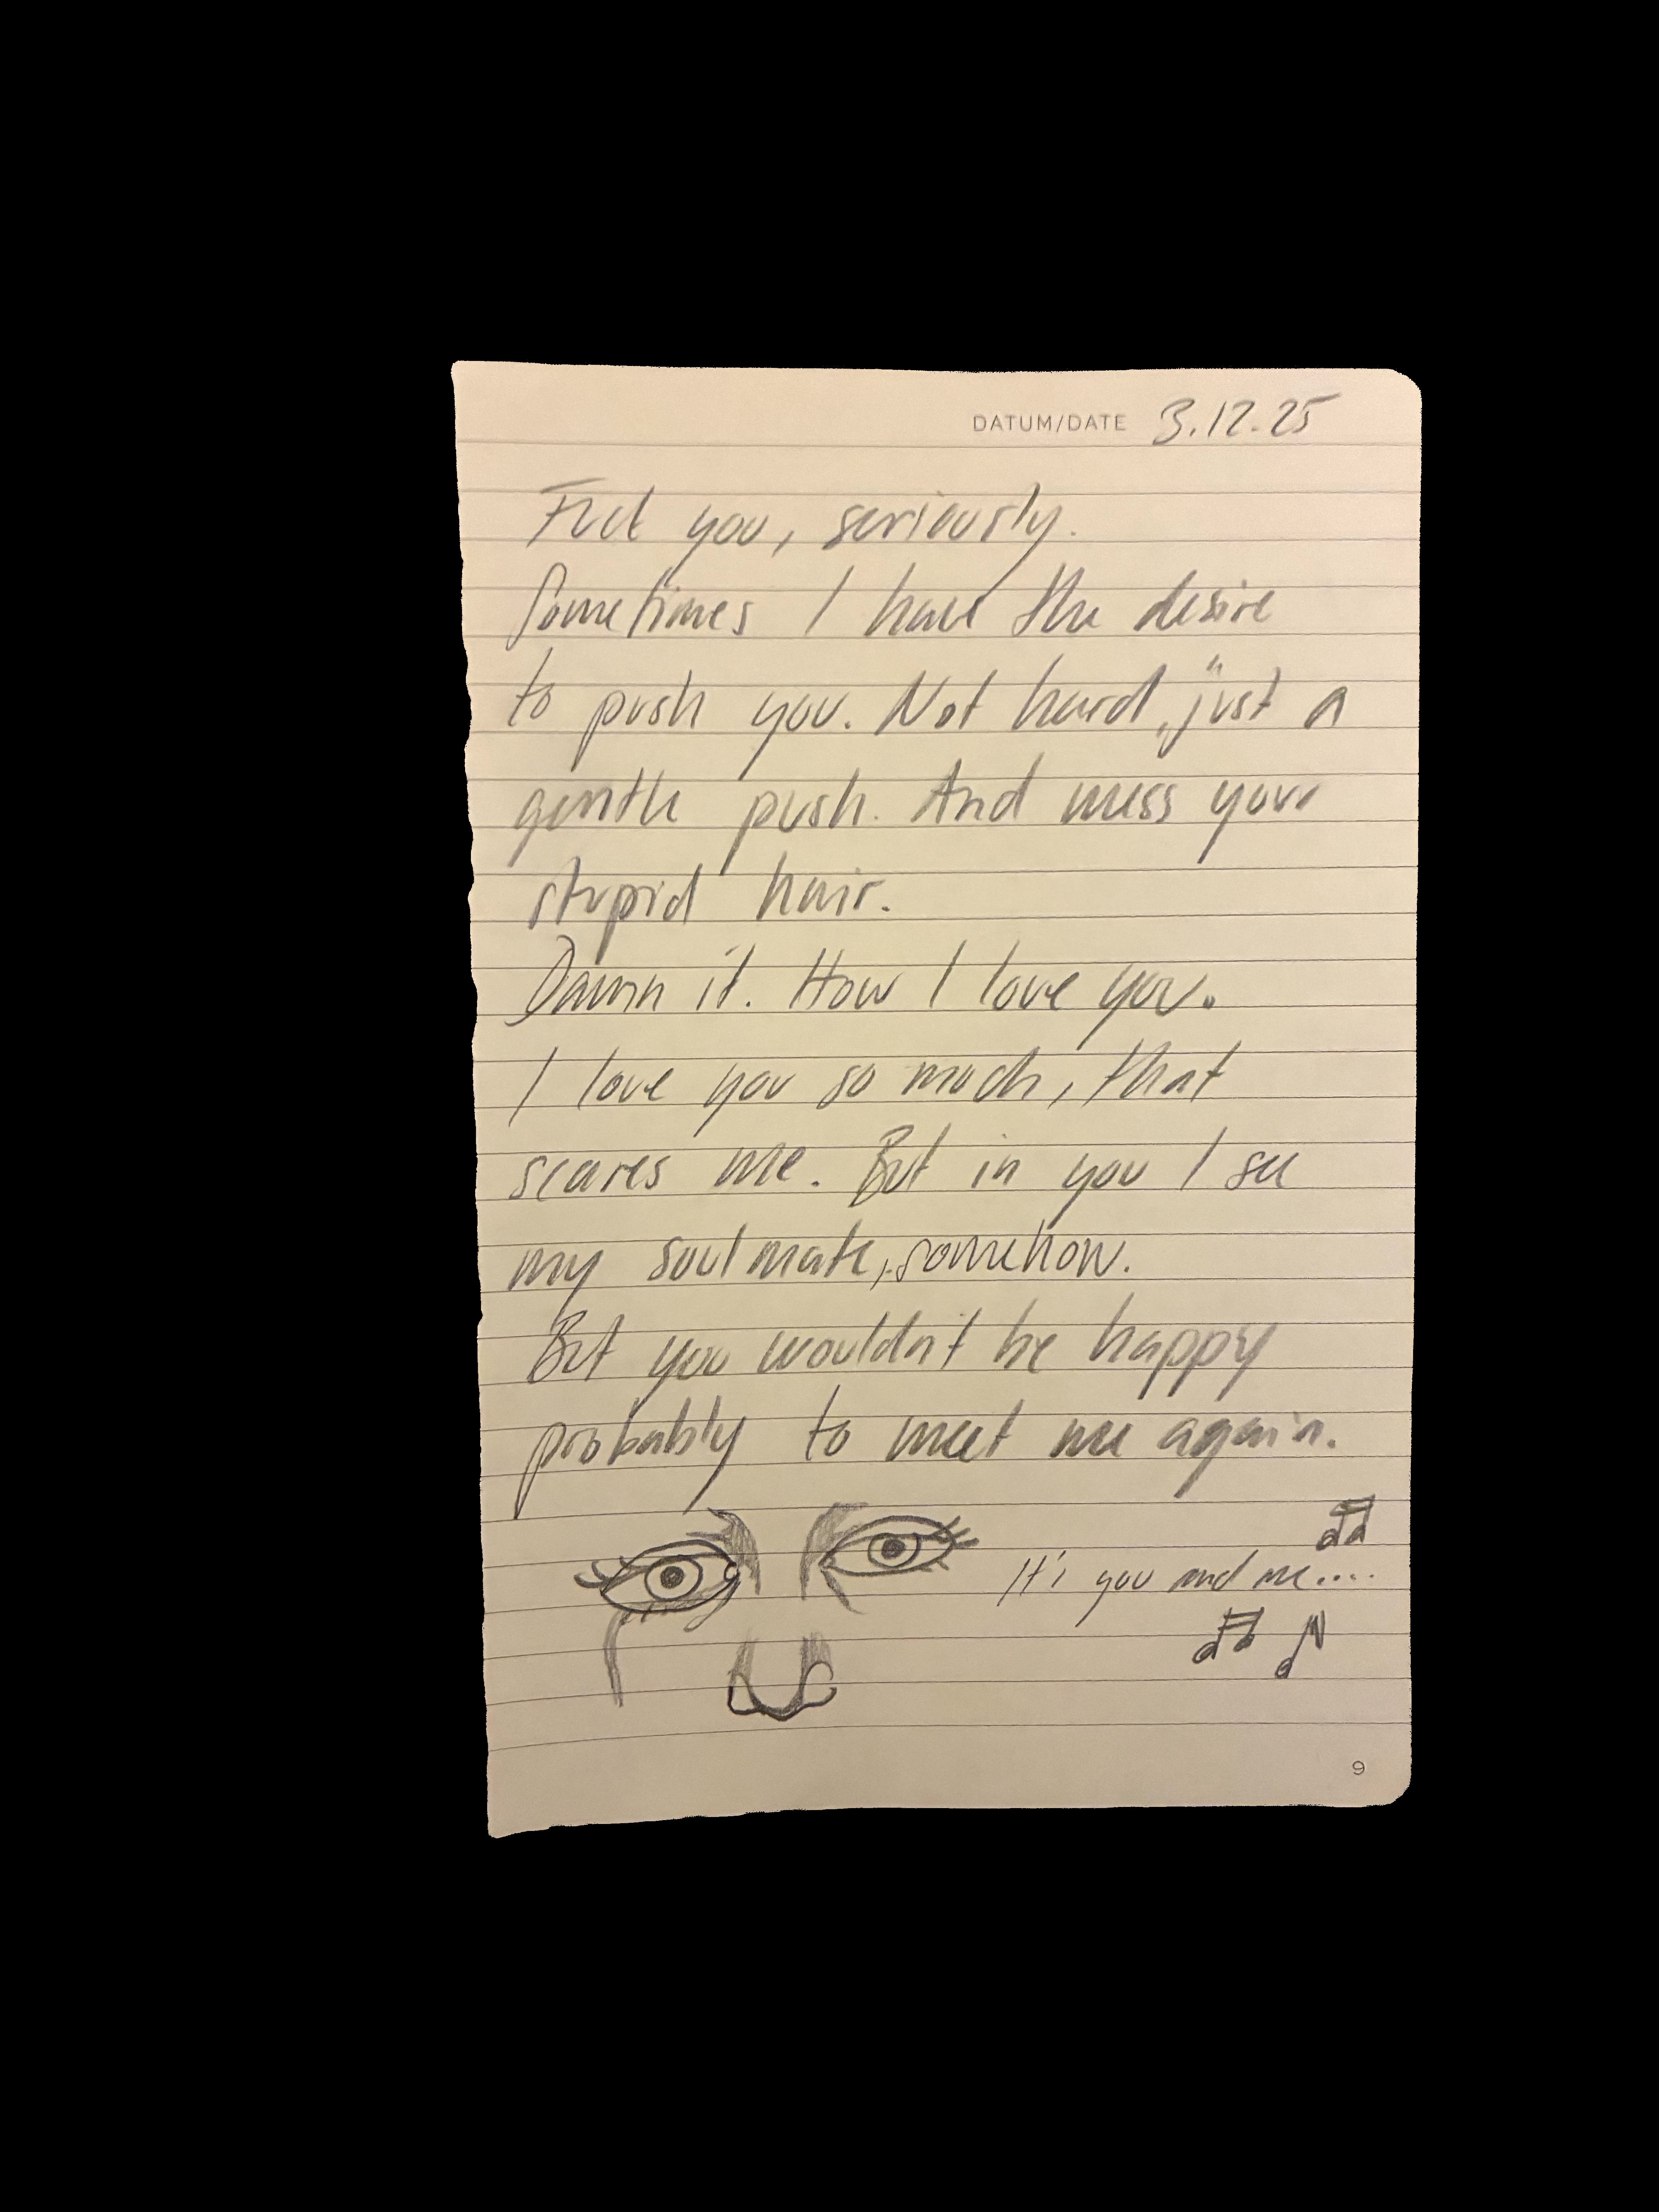 DATUM/DATE 3.12.25
Fuck you, seriously.
Sometimes I have the desire
to push you. Not hard, "just a
gentle push. And mess your
stupid hair.
Damn it. How I love you.
I love you so much, that
scares me. But in you I see
my soulmate, somehow.
But you wouldn't be happy
probably to meet me again.
It's you and me....
9